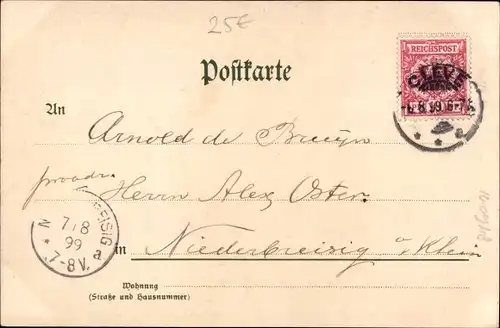 25€
REICHSPOST
Postkarte
CLEVE
8 99 6-7
An
Arnold de Bruyn
Herrn Alex Oster
N EISIG a
7/8
99
7-8V.
in Niederbreisig a/Rhein
Wohnung
(Straße und Hausnummer)